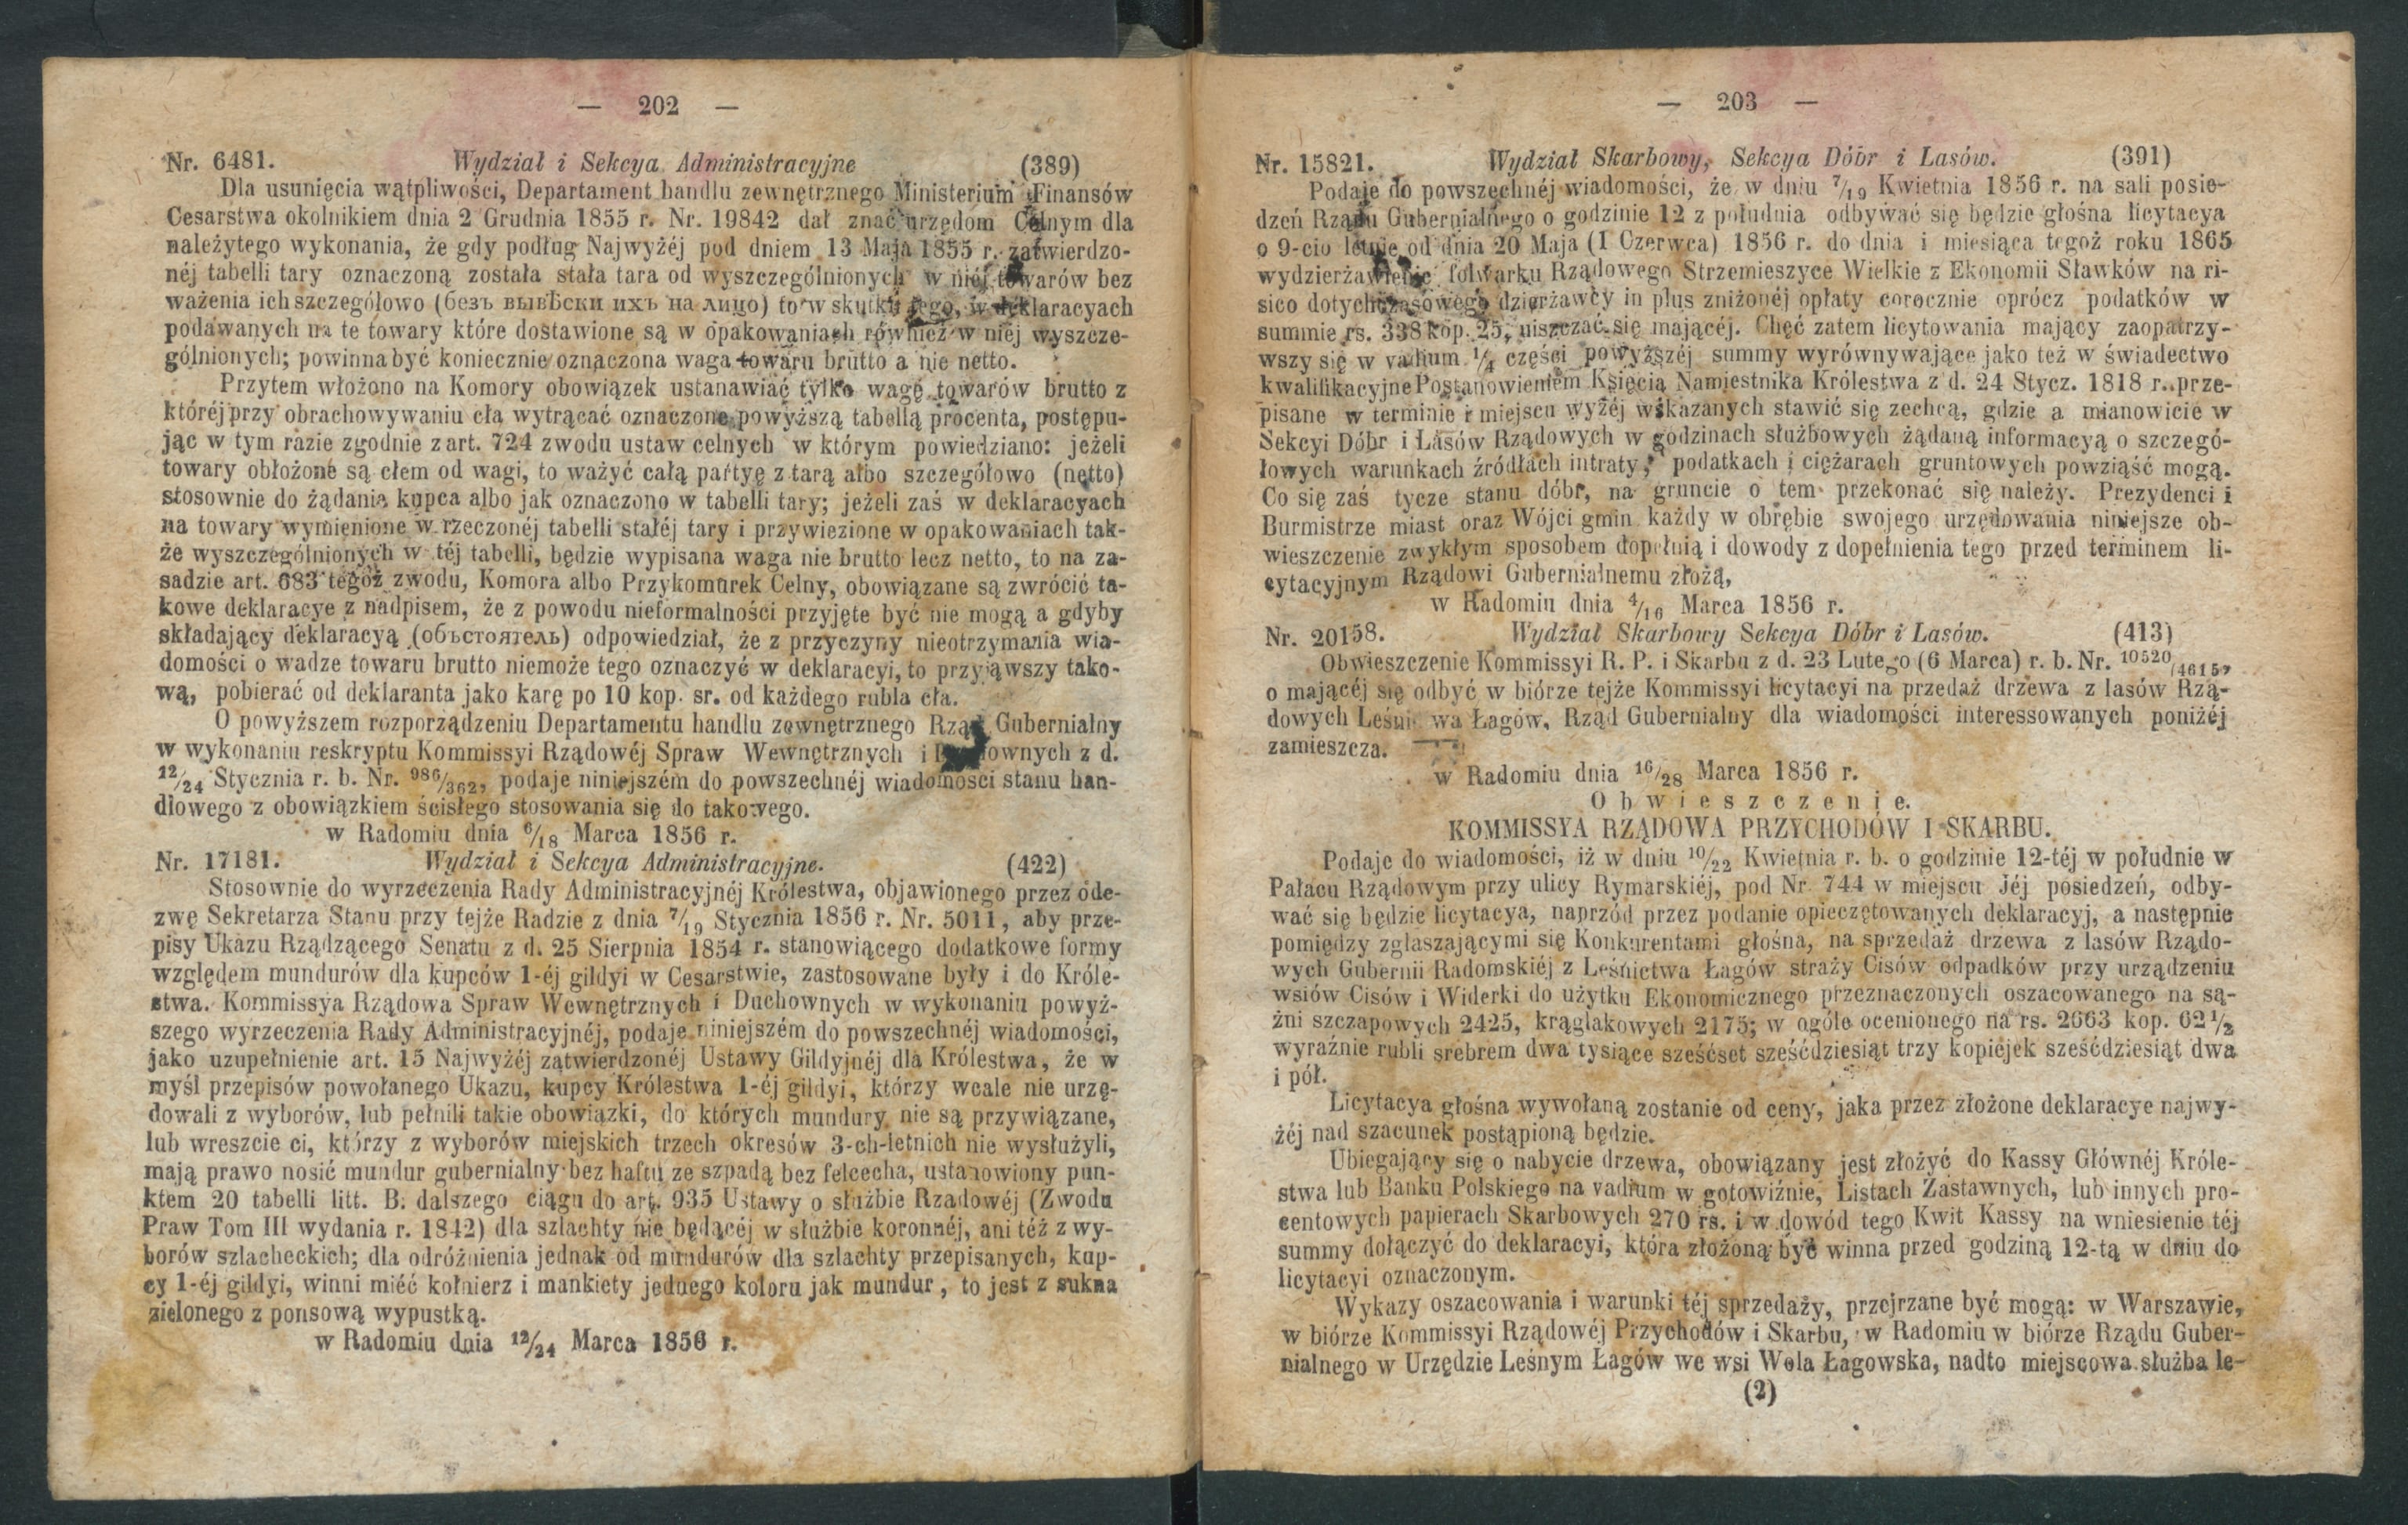 — 202 —
Nr. 6481. Wydział i Sekcya Administracyjne (389)
Dla usunięcia wątpliwości, Departament handlu zewnętrznego Ministerium Finansów
Cesarstwa okolnikiem dnia 2 Grudnia 1855 r. Nr. 19842 dał znać urzędom Celnym dla
należytego wykonania, że gdy podług Najwyżéj pod dniem 13 Maja 1855 r. zatwierdzo-
néj tabelli tary oznaczoną została stała tara od wyszczególnionych w niéj towarów bez
ważenia ich szczegółowo (безъ вывѣски ихъ на лицо) to w skutku tego, w deklaracyach
podawanych na te towary które dostawione są w opakowaniach również w niéj wyszcze-
gólnionych; powinna być koniecznie oznaczona waga towaru brutto a nie netto.
Przytem włożono na Komory obowiązek ustanawiać tylko wagę towarów brutto z
któréj przy obrachowywaniu cła wytrącać oznaczone powyższą tabellą procenta, postępu-
jąc w tym razie zgodnie z art. 724 zwodu ustaw celnych w którym powiedziano: jeżeli
towary obłożone są cłem od wagi, to ważyć całą partyę z tarą albo szczegółowo (netto)
stosownie do żądania kupca albo jak oznaczono w tabelli tary; jeżeli zaś w deklaracyach
na towary wymienione w rzeczonéj tabelli stałéj tary i przywiezione w opakowaniach tak-
że wyszczególnionych w téj tabelli, będzie wypisana waga nie brutto lecz netto, to na za-
sadzie art. 683 tegoż zwodu, Komora albo Przykomurek Celny, obowiązane są zwrócić ta-
kowe deklaracye z nadpisem, że z powodu nieformalności przyjęte być nie mogą a gdyby
składający deklaracyą (объстоятель) odpowiedział, że z przyczyny nieotrzymania wia-
domości o wadze towaru brutto niemoże tego oznaczyć w deklaracyi, to przyjąwszy tako-
wą, pobierać od deklaranta jako karę po 10 kop. sr. od każdego rubla cła.
O powyższem rozporządzeniu Departamentu handlu zewnętrznego Rząd Gubernialny
w wykonaniu reskryptu Kommissyi Rządowéj Spraw Wewnętrznych i Duchownych z d.
12/24 Stycznia r. b. Nr. 986/362, podaje niniejszém do powszechnéj wiadomości stanu han-
dlowego z obowiązkiem ścisłego stosowania się do takowego.
w Radomiu dnia 6/18 Marca 1856 r.
Nr. 17181. Wydział i Sekcya Administracyjne. (422)
Stosownie do wyrzeczenia Rady Administracyjnéj Królestwa, objawionego przez ode-
zwę Sekretarza Stanu przy tejże Radzie z dnia 7/19 Stycznia 1856 r. Nr. 5011, aby prze-
pisy Ukazu Rządzącego Senatu z d. 25 Sierpnia 1854 r. stanowiącego dodatkowe formy
względem mundurów dla kupców 1-éj gildyi w Cesarstwie, zastosowane były i do Króle-
stwa. Kommissya Rządowa Spraw Wewnętrznych i Duchownych w wykonaniu powyż-
szego wyrzeczenia Rady Administracyjnéj, podaje niniejszém do powszechnéj wiadomości,
jako uzupełnienie art. 15 Najwyżéj zatwierdzonéj Ustawy Gildyjnéj dla Królestwa, że w
myśl przepisów powołanego Ukazu, kupcy Królestwa 1-éj gildyi, którzy wcale nie urzę-
dowali z wyborów, lub pełnili takie obowiązki, do których mundury nie są przywiązane,
lub wreszcie ci, którzy z wyborów miejskich trzech okresów 3-ch-letnich nie wysłużyli,
mają prawo nosić mundur gubernialny bez haftu ze szpadą bez felcecha, ustanowiony pun-
ktem 20 tabelli litt. B. dalszego ciągu do art. 935 Ustawy o służbie Rządowéj (Zwodu
Praw Tom III wydania r. 1842) dla szlachty nie będącéj w służbie koronnéj, ani téż z wy-
borów szlacheckich; dla odróżnienia jednak od mundurów dla szlachty przepisanych, kup-
cy 1-éj gildyi, winni miéć kołnierz i mankiety jednego koloru jak mundur, to jest z sukna
zielonego z ponsową wypustką.
w Radomiu dnia 12/24 Marca 1856 r.
— 203 —
Nr. 15821. Wydział Skarbowy, Sekcya Dóbr i Lasów. (391)
Podaje do powszechnéj wiadomości, że w dniu 7/19 Kwietnia 1856 r. na sali posie-
dzeń Rządu Gubernialnego o godzinie 12 z południa odbywać się będzie głośna licytacya
o 9-cio letnie od dnia 20 Maja (1 Czerwca) 1856 r. do dnia i miesiąca tegoż roku 1865
wydzierżawienie folwarku Rządowego Strzemieszyce Wielkie z Ekonomii Sławków na ri-
sico dotychczasowego dzierżawcy in plus zniżonéj opłaty corocznie oprócz podatków w
summie rs. 338 kop. 25, uiszczać się mającéj. Chęć zatem licytowania mający zaopatrzy-
wszy się w vadium 1/4 części powyższéj summy wyrównywające jako też w świadectwo
kwalifikacyjne Postanowieniem Księcia Namiestnika Królestwa z d. 24 Stycz. 1818 r. prze-
pisane w terminie i miejscu wyżéj wskazanych stawić się zechcą, gdzie a mianowicie w
Sekcyi Dóbr i Lasów Rządowych w godzinach służbowych żądaną informacyą o szczegó-
łowych warunkach źródłach intraty, podatkach i ciężarach gruntowych powziąść mogą.
Co się zaś tycze stanu dóbr, na gruncie o tem przekonać się należy. Prezydenci i
Burmistrze miast oraz Wójci gmin każdy w obrębie swojego urzędowania niniejsze ob-
wieszczenie zwykłym sposobem dopełnią i dowody z dopełnienia tego przed terminem li-
cytacyjnym Rządowi Gubernialnemu złożą,
w Radomiu dnia 4/16 Marca 1856 r.
Nr. 20158. Wydział Skarbowy Sekcya Dóbr i Lasów. (413)
Obwieszczenie Kommissyi R. P. i Skarbu z d. 23 Lutego (6 Marca) r. b. Nr. 10520/4615,
o mającéj się odbyć w biórze tejże Kommissyi licytacyi na przedaż drzewa z lasów Rzą-
dowych Leśni wa Łagów, Rząd Gubernialny dla wiadomości interessowanych poniżéj
zamieszcza.
w Radomiu dnia 16/28 Marca 1856 r.
Obwieszczenie.
KOMMISSYA RZĄDOWA PRZYCHODÓW I SKARBU.
Podaje do wiadomości, iż w dniu 10/22 Kwietnia r. b. o godzinie 12-téj w południe w
Pałacu Rządowym przy ulicy Rymarskiéj, pod Nr. 744 w miejscu Jéj posiedzeń, odby-
wać się będzie licytacya, naprzód przez podanie opieczętowanych deklaracyj, a następnie
pomiędzy zgłaszającymi się Konkurentami głośna, na sprzedaż drzewa z lasów Rządo-
wych Gubernii Radomskiéj z Leśnictwa Łagów straży Cisów odpadków przy urządzeniu
wsiów Cisów i Widerki do użytku Ekonomicznego przeznaczonych oszacowanego na są-
żni szczapowych 2425, krąglakowych 2175; w ogóle ocenionego na rs. 2663 kop. 62 1/2
wyraźnie rubli srebrem dwa tysiące sześćset sześćdziesiąt trzy kopiéjek sześćdziesiąt dwa
i pół.
Licytacya głośna wywołaną zostanie od ceny, jaka przez złożone deklaracye najwy-
żéj nad szacunek postąpioną będzie.
Ubiegający się o nabycie drzewa, obowiązany jest złożyć do Kassy Głównéj Króle-
stwa lub Banku Polskiego na vadium w gotowiźnie, Listach Zastawnych, lub innych pro-
centowych papierach Skarbowych 270 rs. i w dowód tego Kwit Kassy na wniesienie téj
summy dołączyć do deklaracyi, która złożoną być winna przed godziną 12-tą w dniu do
licytacyi oznaczonym.
Wykazy oszacowania i warunki téj sprzedaży, przejrzane być mogą: w Warszawie,
w biórze Kommissyi Rządowéj Przychodów i Skarbu, w Radomiu w biórze Rządu Guber-
nialnego w Urzędzie Leśnym Łagów we wsi Wola Łagowska, nadto miejscowa służba le-
(2)